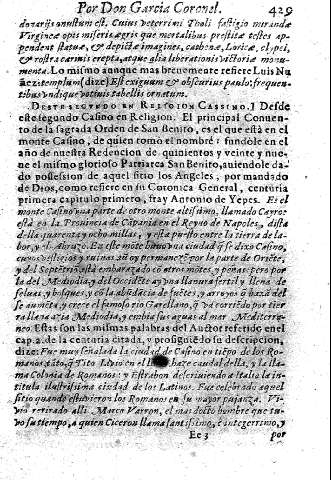 Por Don Garcia Coronel. 429
donarijs onustum est. Cuius vegerrimi Tholi fastigio mirandæ
Virgineæ opis miseriæ agris que mortalibus prestitæ testes ap-
pendent statuæ, & depictæ imagines, cathenæ, Loricæ, clypei,
& rostra carinis erepta, atque alia liberationis victoriæ monu-
menta. Lo mismo aunque mas brevemente refiere Luis Nu
ñez: templum (dize) Est exiguum & obscurius paulo: frequen-
tibus vndique votiuis tabellis ornatum.
DESTE SEGVNDO EN RELIGION CASSINO.] Desde
este segundo Casino en Religion. El principal Conuen-
to de la sagrada Orden de San Benito, es el que està en el
monte Casino, de quien tomò el nombre: fundòle en el
año de nuestra Redencion de quinientos y veinte y nue-
ue el mismo glorioso Patriarca San Benito, auiendole da-
do possession de aquel sitio los Angeles, por mandado
de Dios, como refiere en su Coronica General, centuria
primera capitulo primero, fray Antonio de Yepes. Es el
monte Casino vna parte de otro monte altissimo, llamado Cayro:
està en la Prouincia de Càpania en el Reyno de Napoles, dista
della quarenta y ocho millas, y està puesto entre la tierra de la-
bor, y el Abruzo. En este mòte huuo vna ciudad q̃ se dixo Casino,
cuyos vestigios y ruinas aũ oy permanecẽ por la parte de Oriẽte,
y del Septẽtriõ està embarazado cõ otros mõtes y peñas: pero por
la del Mediodia, y del Occidẽte, ay vna llanura fertil y llena de
seluas, y bosques, y cõ la assistẽcia de fuẽtes, y arroyos q̃ baxã del
se aumẽta, y crece el famoso rio Garellano, q̃ và corriẽdo por tier
ra llana azia Mediodia, y embia sus aguas al mar Mediterra-
neo. Estas son las mismas palabras del Auctor referido en el
cap. 2. de la centuria citada, y prosiguiẽdo su descripcion,
dize: Fue muy señalada la ciudad de Casino en tiẽpo de los Ro-
manos: tãto, q̃ Tito Liuio en el haze caudal della, y la lla-
ma Colonia de Romanos: y Estrabon descriuiendo a Italia la in-
titula ilustrissima ciudad de los Latinos. Fue celebrado aquel
sitio quando estuuieron los Romanos en su mayor pujança. Vi-
uiò retirado alli. Marco Varron, el mas docto hombre que tu-
uo su tiempo, a quien Ciceron llama santissimo, è integerrimo, y
Ee 3 por